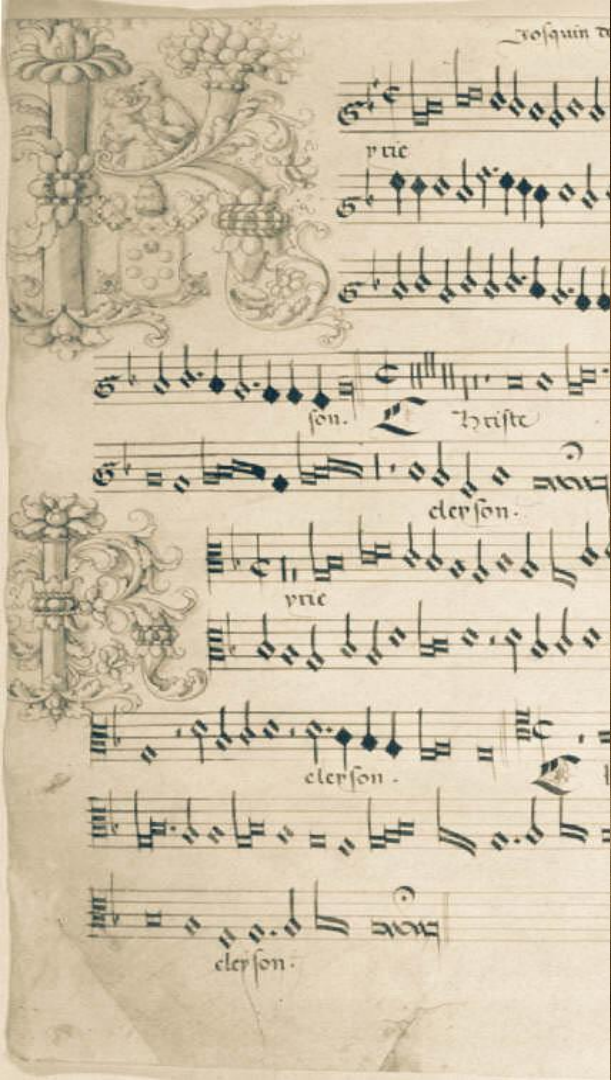 Josquin de
Kyrie
son. Christe
eleyson.
Kyrie
eleyson. C
eleyson.